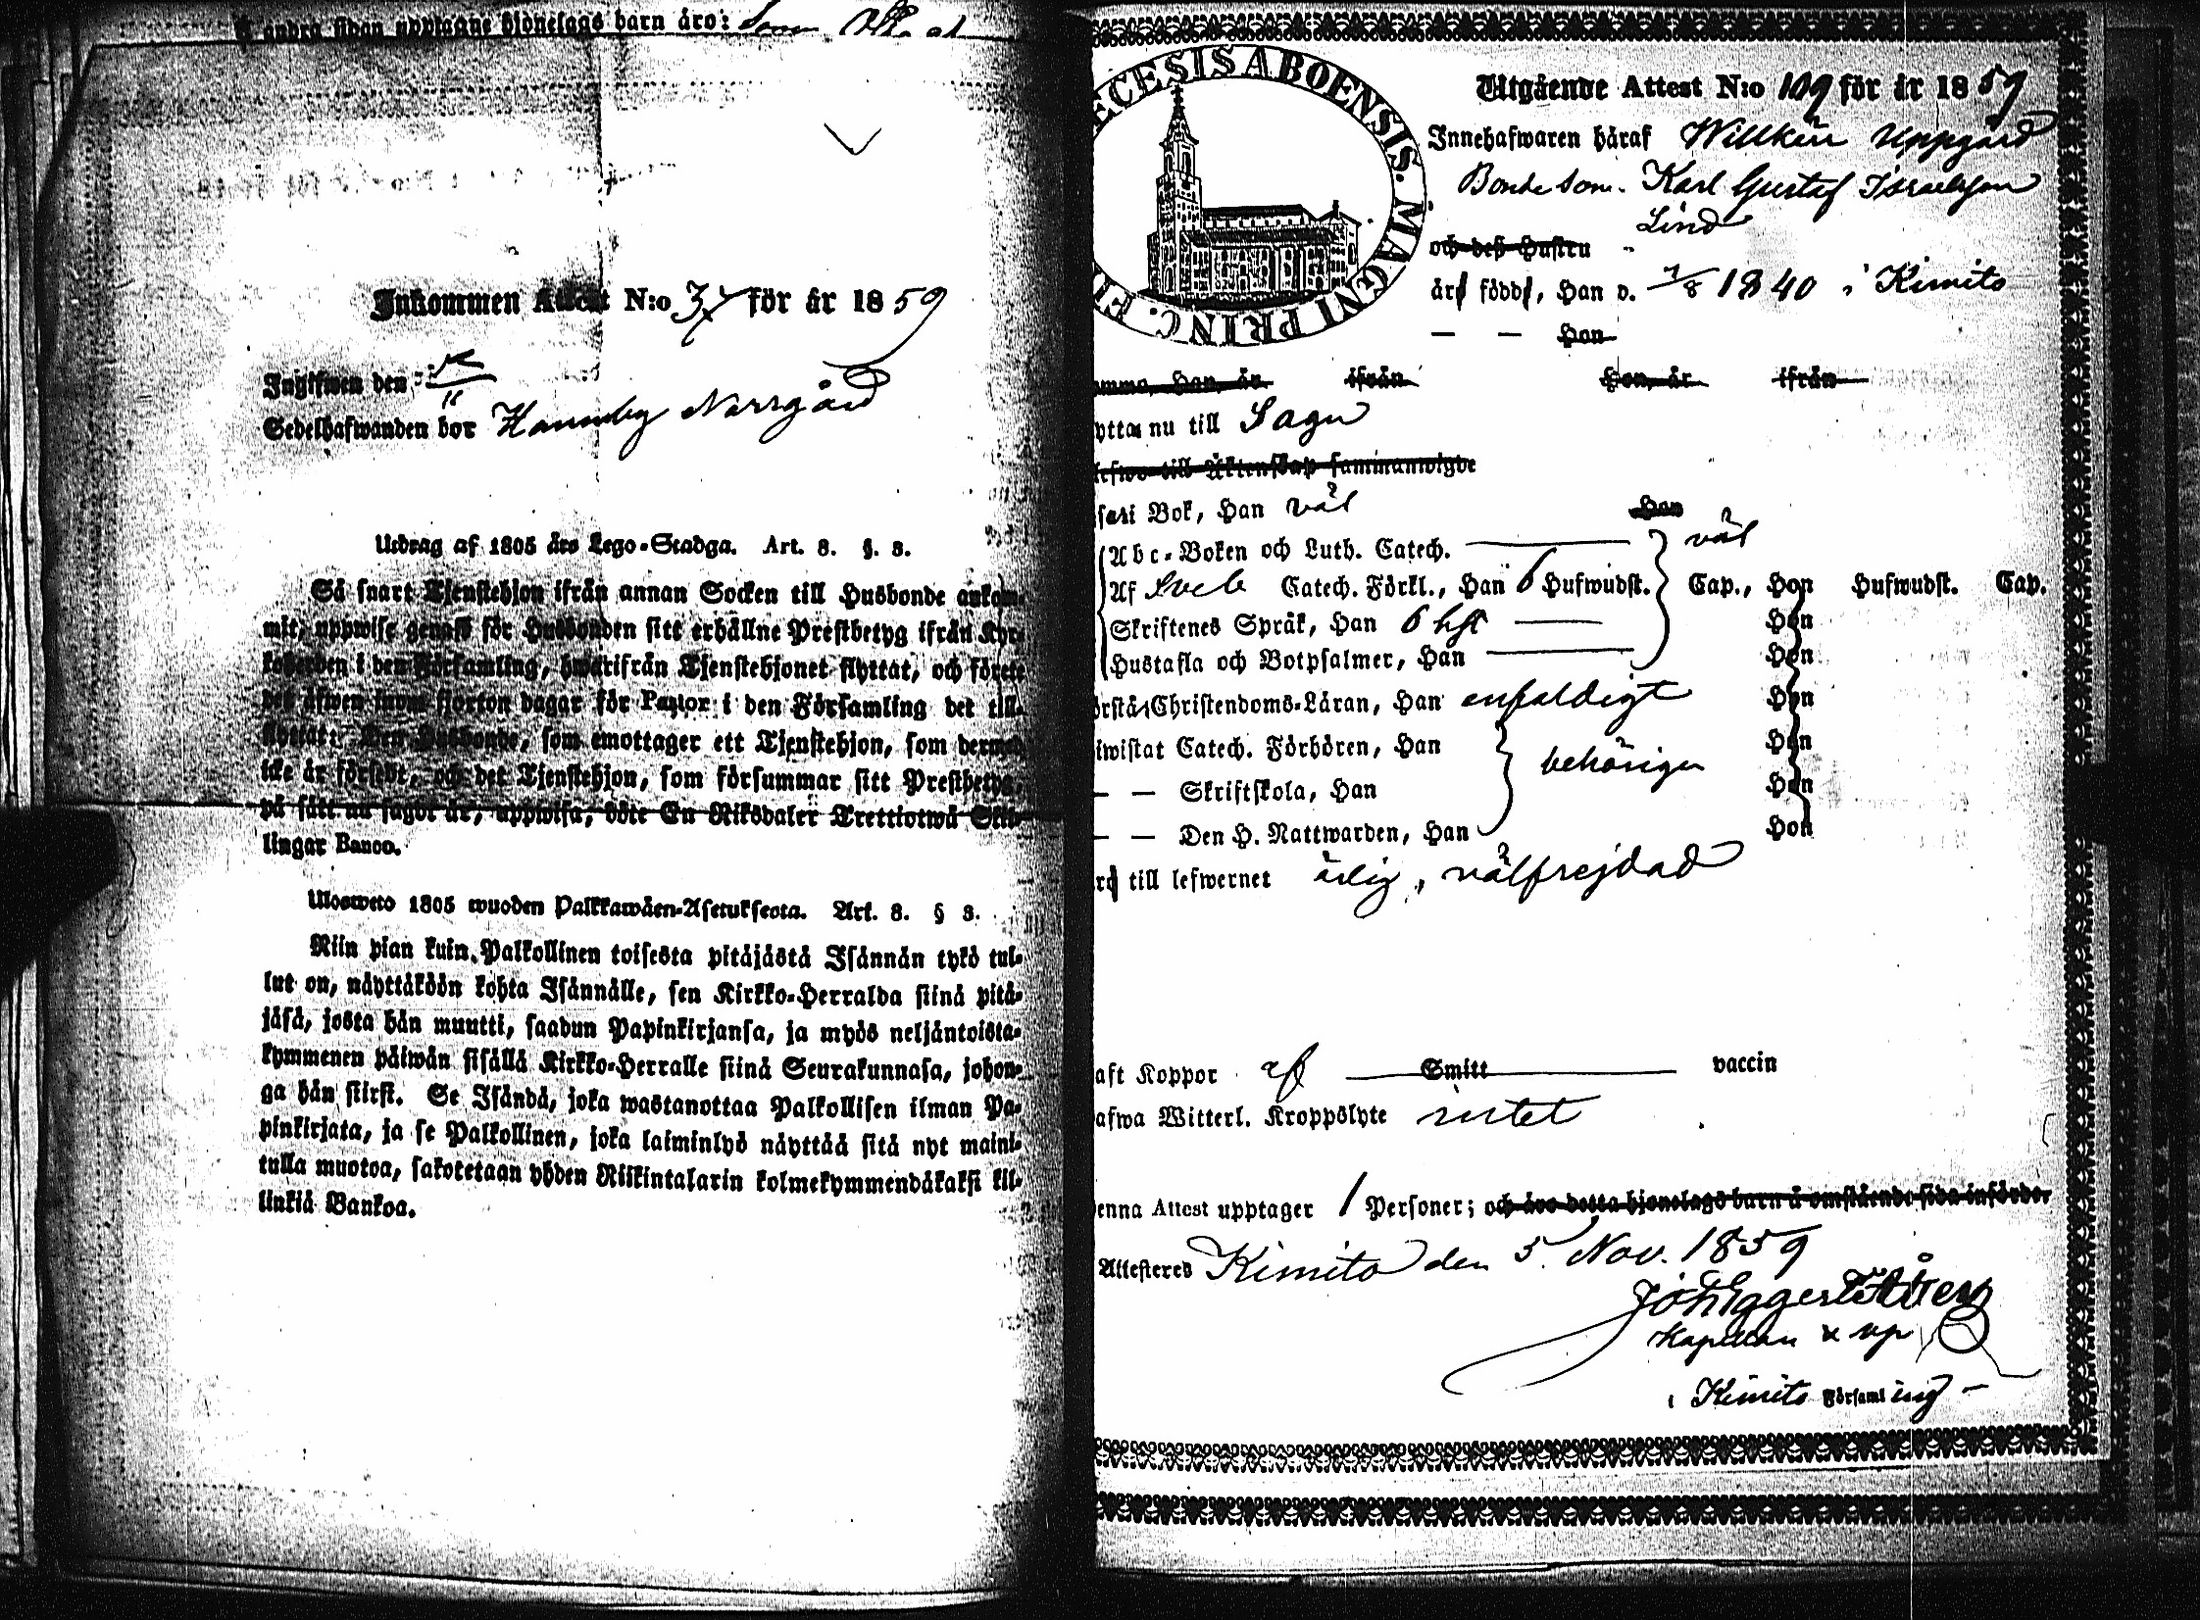 å andra sidan upptagne hjonelags barn äro:
Inkommen Attest N:o 37 för år 1859
Ingifwen den
Sedelhafwanden bor Hammby Norrgård
Utdrag af 1805 års Lego-Stadga. Art. 8. §. 3.
Så snart Tjenstehjon ifrån annan Socken till Husbonde ankom-
mit, uppwise genast för Husbonden sitt erhållne Prestbetyg ifrån Kyr-
koherden i den Församling, hwarifrån Tjenstehjonet flyttat, och förete
det äfwen inom fjorton dagar för Pastor i den Församling det till-
flyttat. Den Husbonde, som emottager ett Tjenstehjon, som dermed
icke är försedt, och det Tjenstehjon, som försummar sitt Prestbetyg,
på sätt nu sagdt är, uppwisa, böte En Riksdaler Trettiotwå Skil-
lingar Banco.
Uloswето 1805 wuoden Palkkawäen-Asetuksesta. Art. 8. § 3.
Niin pian kuin Palkollinen toisesta pitäjästä Isännän tykö tul-
lut on, näyttäköön kohta Isännälle, sen Kirkko-Herralda siinä pitä-
jäsä, josta hän muutti, saadun Papinkirjansa, ja myös neljäntoista-
kymmenen päiwän sisällä Kirkko-Herralle siinä Seurakunnasa, johon-
ga hän siirst. Se Isändä, joka wastanottaa Palkollisen ilman Pa-
pinkirjata, ja se Palkollinen, joka laiminlyö näyttää sitä nyt maini-
tulla muotoa, sakotetaan yhden Riikintalarin kolmekymmendäkaksi kil-
linkiä Bankoa.
ECESIS ABOENSIS. MAGNI PRINC. F
Utgående Attest N:o 109 för år 1859
Innehafwaren häraf Willkün Uppgård
Bonde Son. Karl Gustaf Israelsson
Lind
och deß Hustru
är född, Han d. 1/8 1840 i Kimito
— — Hon
omma, Han, år ifrån Hon, år ifrån
yttar nu till Sagu
lefwa till Äktenskap sammanwigde
sari Bok, Han väl Hon
Abc-Boken och Luth. Catech. väl
Af Sveb Catech. Förkl., Han 6 Hufwudst. Cap., Hon Hufwudst. Cap.
Skriftenes Språk, Han 6 hst Hon
Hustafla och Botpsalmer, Han Hon
örstå Christendoms-Läran, Han enfaldigt Hon
iwistat Catech. Förhören, Han behörigen Hon
— — Skriftskola, Han Hon
— — Den H. Nattwarden, Han Hon
till lefwernet ärlig, välfrejdad
aft Koppor af Smitt vaccin
afwa Witterl. Kroppslyte intet
enna Attest upptager 1 Personer; och äro detta hjonelags barn å omstående sida införde.
Attesteres Kimito den 5 Nov. 1859
Kapellan & vp
i Kimito Församling